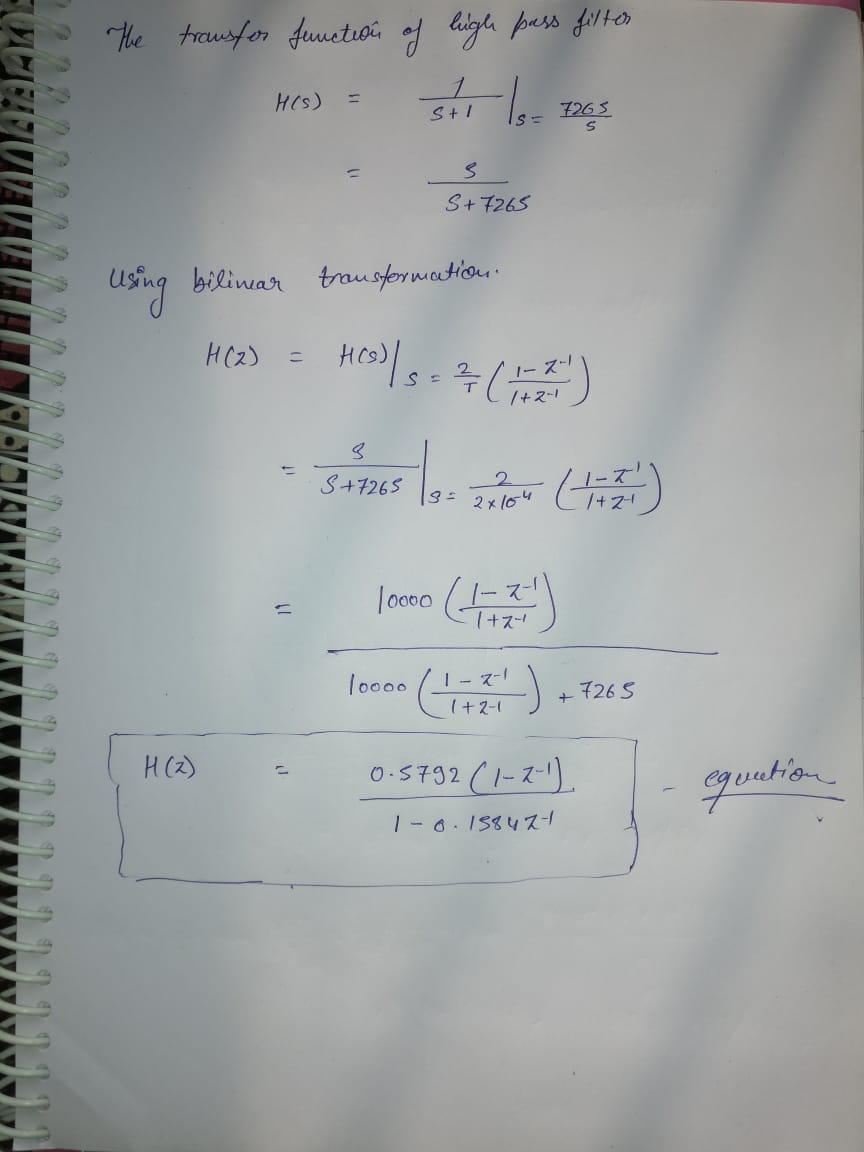 The transfer function of high pass filter
H(s) = 1/(s+1) |s = 7265/s
= s/(s+7265)
Using bilinear transformation.
H(z) = H(s)|s = 2/T ((1-z^-1)/(1+z^-1))
= s/(s+7265) |s = 2/(2×10^-4) ((1-z^-1)/(1+z^-1))
= 10000 ((1-z^-1)/(1+z^-1)) / (10000 ((1-z^-1)/(1+z^-1)) + 7265)
H(z) = 0.5792 (1-z^-1) / (1-0.1584z^-1) - equation